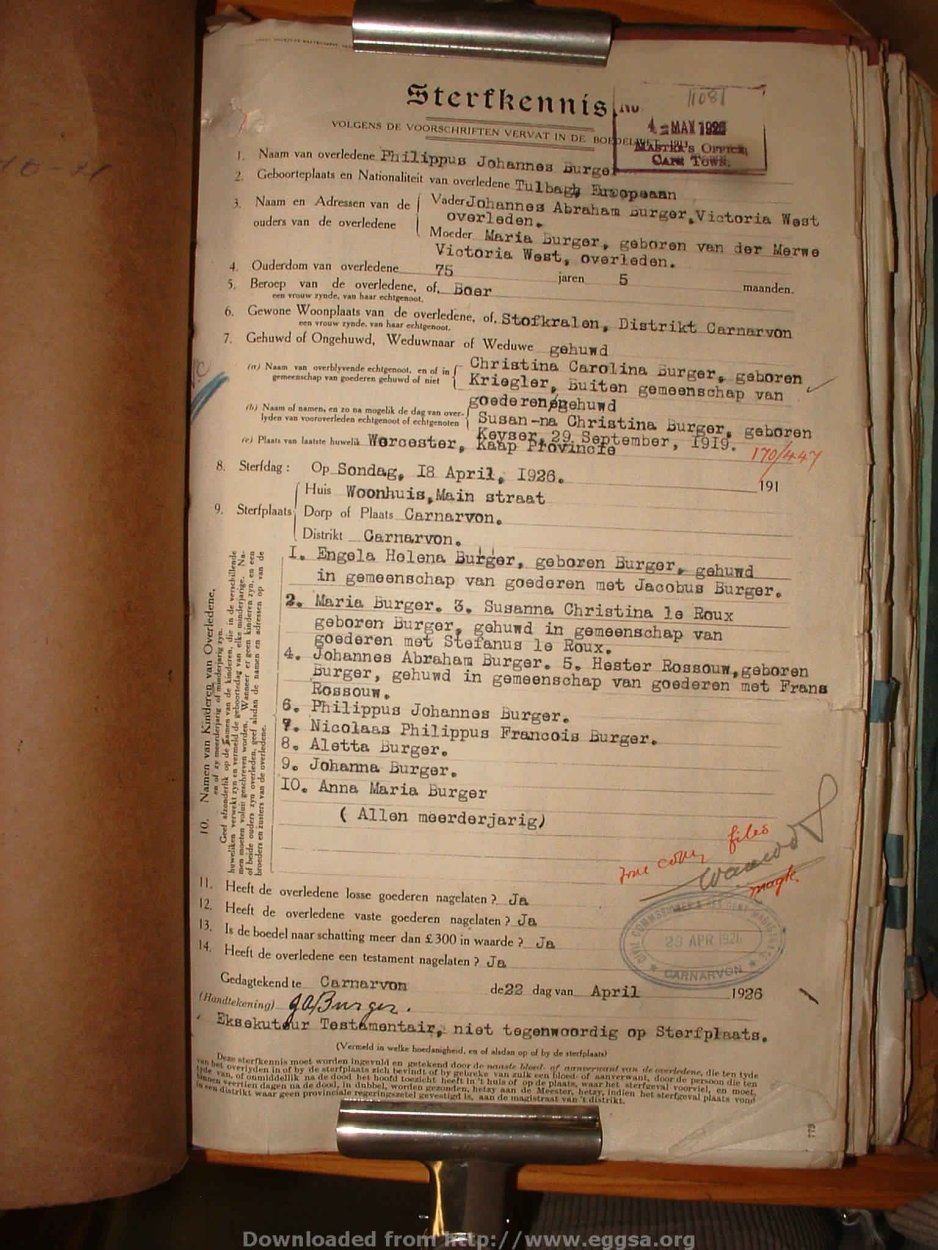 Sterfkennis
No 11081
4 - MAY 1926
MASTER'S OFFICE,
CAPE TOWN.
VOLGENS DE VOORSCHRIFTEN VERVAT IN DE
1. Naam van overledene Philippus Johannes Burger
2. Geboorteplaats en Nationaliteit van overledene Tulbagh Europeaan
3. Naam en Adressen van de ouders van de overledene
Vader Johannes Abraham Burger, Victoria West
overleden.
Moeder Maria Burger, geboren van der Merwe
Victoria West, overleden.
4. Ouderdom van overledene 75 jaren 5 maanden.
5. Beroep van de overledene, of, Boer
een vrouw zynde, van haar echtgenoot.
6. Gewone Woonplaats van de overledene, of, Stofkralen, Distrikt Carnarvon
een vrouw zynde, van haar echtgenoot.
7. Gehuwd of Ongehuwd, Weduwnaar of Weduwe gehuwd
(a) Naam van overblyvende echtgenoot, en of in
gemeenschap van goederen gehuwd of niet
Christina Carolina Burger, geboren
Kriegler, Buiten gemeenschap van
goederen gehuwd
(b) Naam of namen, en zo na mogelik de dag van over-
lyden van vooroverleden echtgenoot of echtgenoten
Susan-na Christina Burger, geboren
Keyser, 29 September, 1919.
170/447
(c) Plaats van laatste huwelik Worcester, Kaap Provincie
8. Sterfdag: Op Sondag, 18 April, 1926. 191
9. Sterfplaats
Huis Woonhuis, Main straat
Dorp of Plaats Carnarvon.
Distrikt Carnarvon.
10. Namen van Kinderen van Overledene,
en of zy meerderjarig of minderjarig zyn.
Geef afzonderlik op de namen van de kinderen, die in de verschillende
huweliken verwekt zyn en vermeld de geboortedag van elke minderjarige. Na-
men moeten voluit geschreven worden. Wanneer er geen kinderen zyn, en een
of beide ouders zyn overleden, geef alsdan de namen en adressen op van de
broeders en zusters van de overledene.
1. Engela Helena Burger, geboren Burger, gehuwd
in gemeenschap van goederen met Jacobus Burger.
2. Maria Burger. 3. Susanna Christina le Roux
geboren Burger, gehuwd in gemeenschap van
goederen met Stefanus le Roux.
4. Johannes Abraham Burger. 5. Hester Rossouw, geboren
Burger, gehuwd in gemeenschap van goederen met Frans
Rossouw.
6. Philippus Johannes Burger.
7. Nicolaas Philippus Francois Burger.
8. Aletta Burger.
9. Johanna Burger.
10. Anna Maria Burger
( Allen meerderjarig)
True copy files
magte.
11. Heeft de overledene losse goederen nagelaten ? Ja
12. Heeft de overledene vaste goederen nagelaten ? Ja
13. Is de boedel naar schatting meer dan £300 in waarde ? Ja
14. Heeft de overledene een testament nagelaten ? Ja
23 APR 1926
CARNARVON
Gedagtekend te Carnarvon de 22 dag van April 1926
(Handtekening) J A Burger.
Eksekuteur Testamentair, niet tegenwoordig op Sterfplaats.
(Vermeld in welke hoedanigheid, en of alsdan op of by de sterfplaats)
Deze sterfkennis moet worden ingevuld en getekend door de naaste bloed- of aanverwant van de overledene, die ten tyde
van het overlyden in of by de sterfplaats zich bevindt of by gebreke van zulk een bloed- of aanverwant, door de persoon die ten
tyde van, of onmiddellik na de dood het hoofd toezicht heeft in 't huis of op de plaats, waar het sterfgeval voorviel, en moet,
binnen veertien dagen na de dood, in dubbel, worden gezonden, hetzy aan de Meester, hetzy, indien het sterfgeval plaats vond
in een distrikt waar geen provinciale regeringszetel gevestigd is, aan de magistraat van 't distrikt.
Downloaded from http://www.eggsa.org